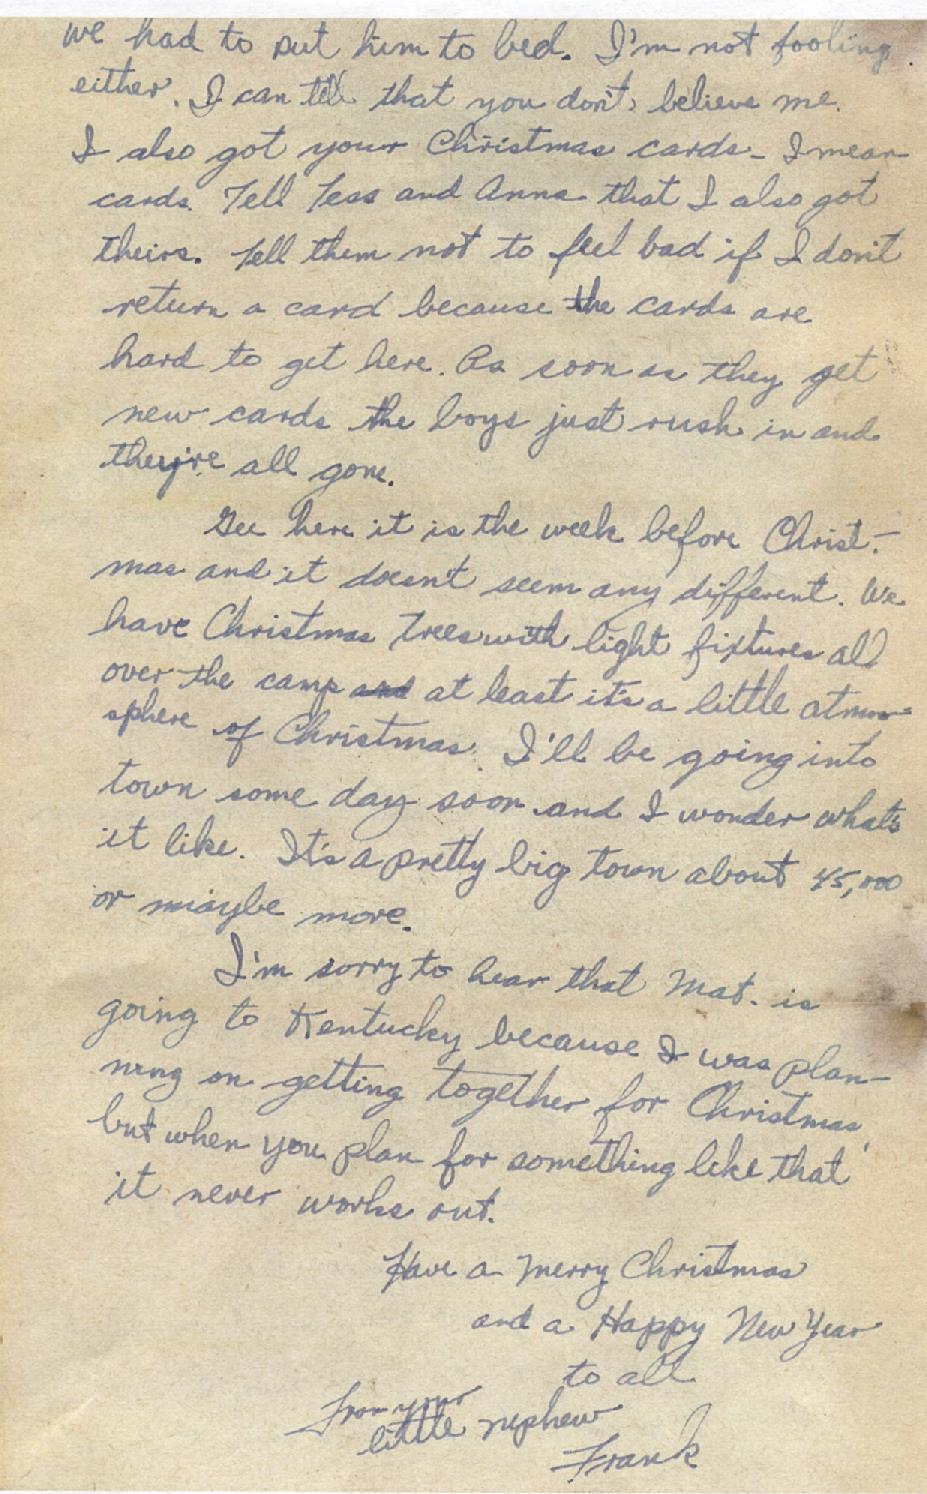 we had to put him to bed. I'm not fooling
either. I can tell that you don't believe me.
I also got your Christmas cards - I mean
cards. Tell Tess and Anna that I also got
theirs. Tell them not to feel bad if I don't
return a card because the cards are
hard to get here. As soon as they get
new cards the boys just rush in and
they're all gone.
Gee here it is the week before Christ-
mas and it doesn't seem any different. We
have Christmas trees with light fixtures all
over the camp and at least it's a little atmo-
sphere of Christmas. I'll be going into
town some day soon and I wonder what's
it like. It's a pretty big town about 45,000
or maybe more.
I'm sorry to hear that Mat. is
going to Kentucky because I was plan-
ning on getting together for Christmas,
but when you plan for something like that
it never works out.
Have a Merry Christmas
and a Happy New Year
to all
From your
little nephew
Frank